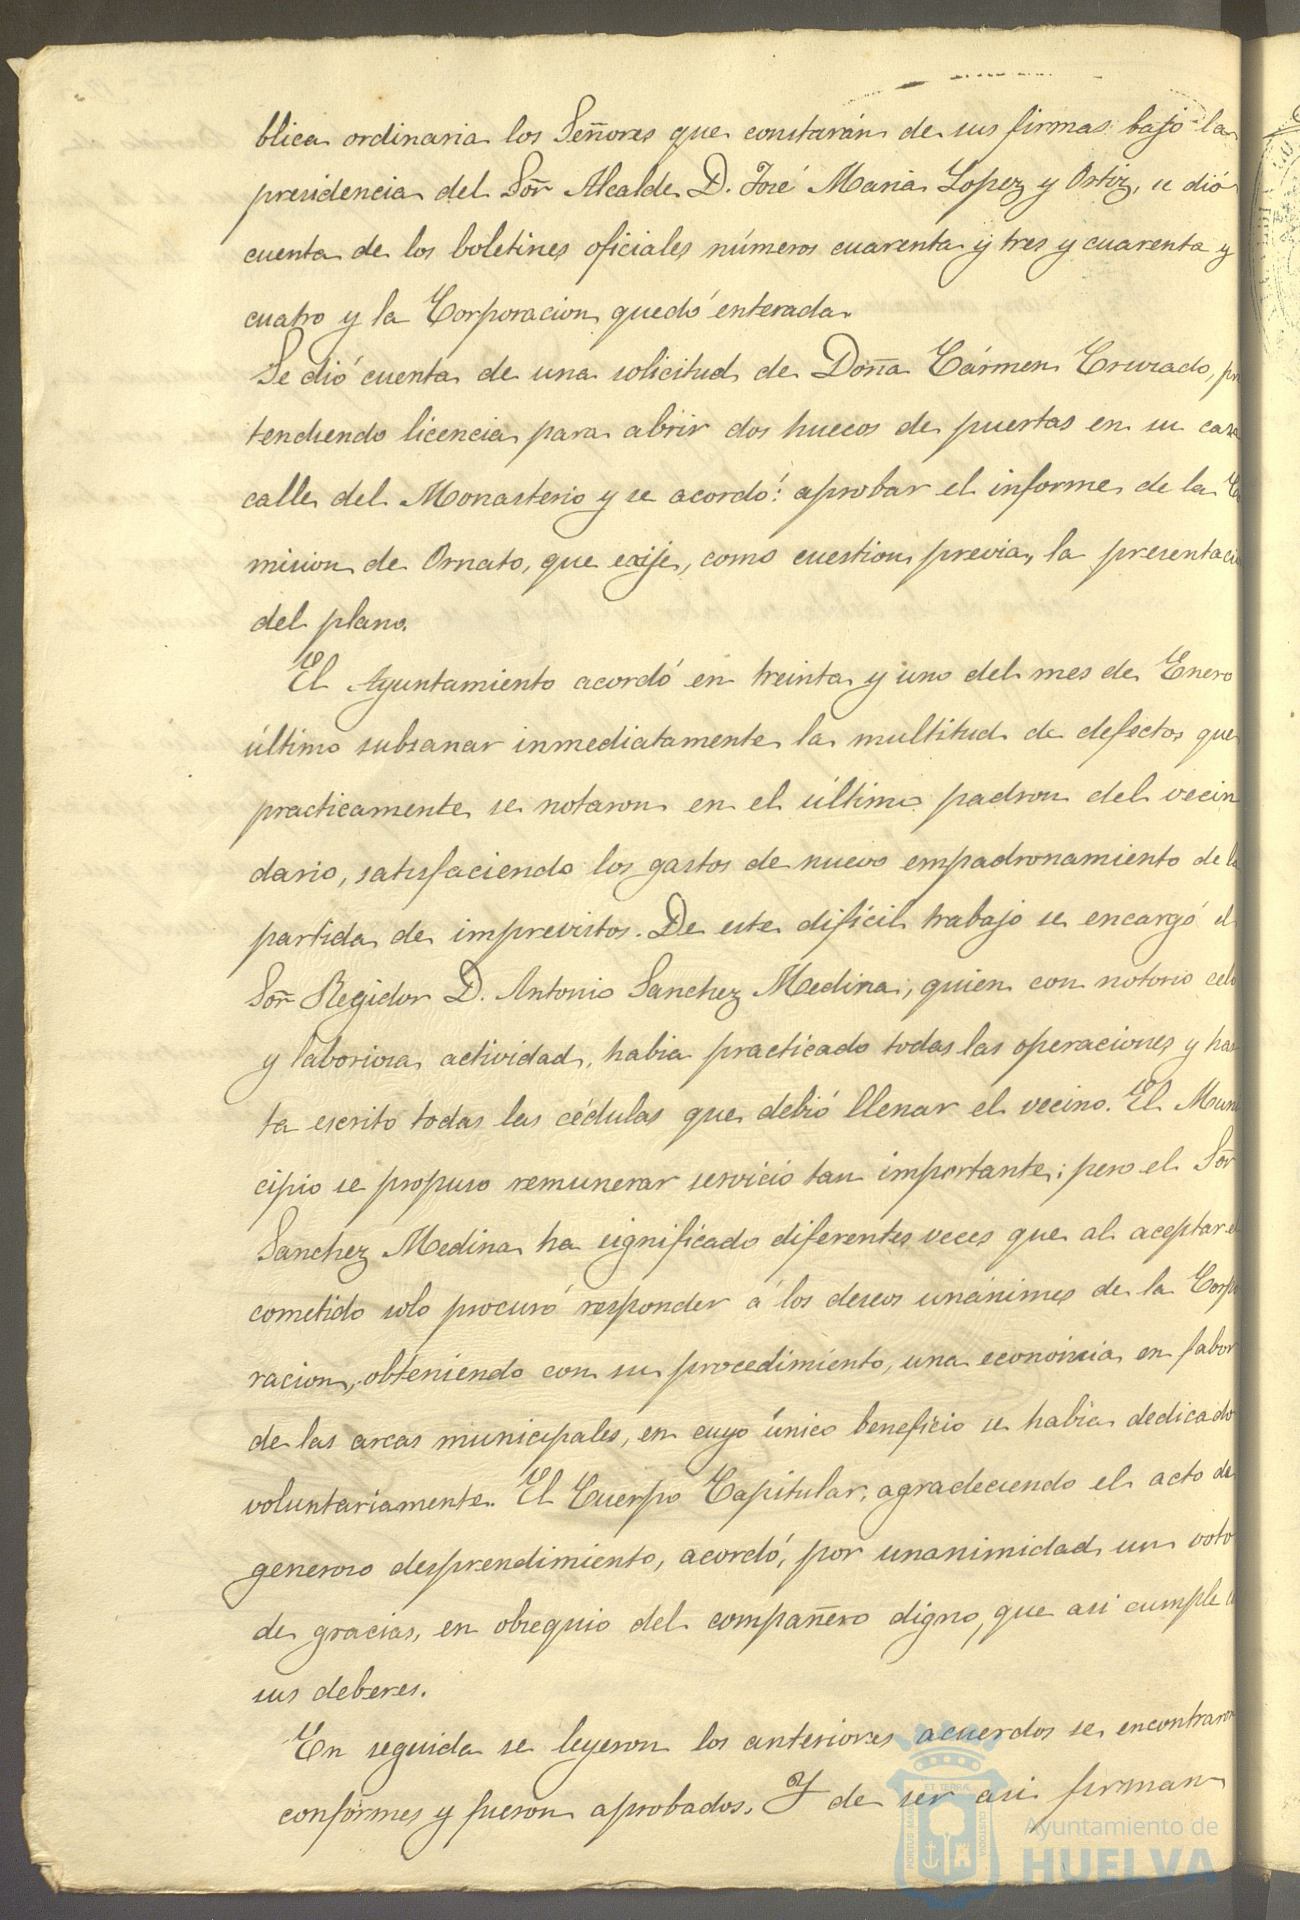 blica ordinaria los Señores que constarán de sus firmas bajo la
presidencia del Sor̃ Alcalde D. José Maria Lopez y Ortiz, se dió
cuenta de los boletines oficiales números cuarenta y tres y cuarenta y
cuatro y la Corporacion quedó enterada.
Se dió cuenta de una solicitud de Doña Cármen Cruzado, pre
tendiendo licencia para abrir dos huecos de puertas en su casa
calle del Monasterio y se acordó: aprobar el informe de la Co
mision de Ornato, que exije, como cuestion previa, la presentacion
del plano.
El Ayuntamiento acordó en treinta y uno del mes de Enero
último subsanar inmediatamente la multitud de defectos que
practicamente se notaron en el último padron del vecin
dario, satisfaciendo los gastos de nuevo empadronamiento de la
partida de imprevistos. De este difícil trabajo se encargó el
Sor̃ Regidor D. Antonio Sanchez Medina, quien con notorio celo
y laboriosa actividad, habia practicado todas las operaciones y has
ta escrito todas las cédulas que debió llenar el vecino. El Muni
cipio se propuso remunerar servicio tan importante; pero el Sor̃
Sanchez Medina ha significado diferentes veces que al aceptar el
cometido solo procuró responder á los deseos unánimes de la Corpo
racion, obteniendo con su procedimiento, una economia en fabor
de las arcas municipales, en cuyo único beneficio se habia dedicado
voluntariamente. El Cuerpo Capitular, agradeciendo el acto de
generoso desprendimiento, acordó, por unanimidad un voto
de gracias, en obsequio del compañero digno, que asi cumple
sus deberes.
En seguida se leyeron los anteriores acuerdos se encontraron
conformes y fueron aprobados. Y de ser asi firman
Ayuntamiento de
HUELVA